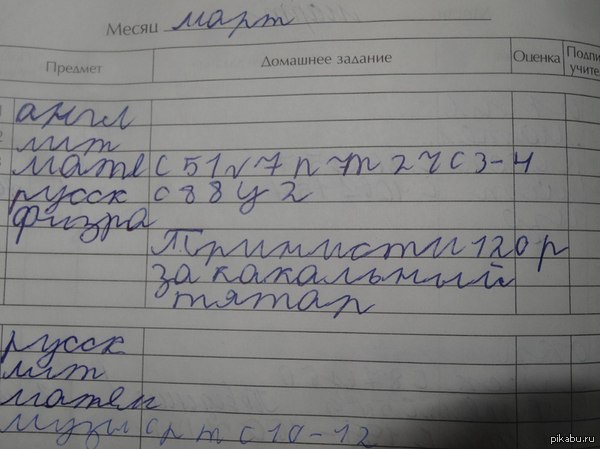 Месяц март
Предмет Домашнее задание Оценка Подпи учите
англ
лит
мате с 51 √ 7 п т 2 ч с 3-4
русск с 88 у 2
физра
Тринисти 120 р
за какальный
тятар
русск
лит
матем
музы с р т с 10-12
pikabu.ru